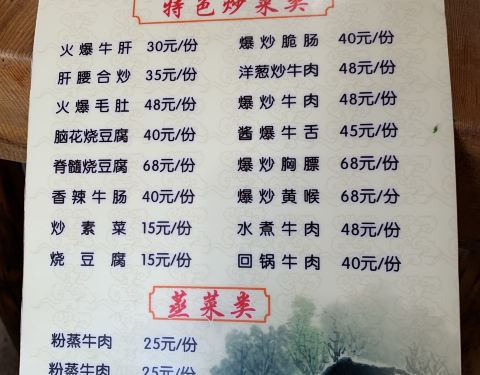 特色炒菜类
火爆牛肝 30元/份
肝腰合炒 35元/份
火爆毛肚 48元/份
脑花烧豆腐 40元/份
脊髓烧豆腐 68元/份
香辣牛肠 40元/份
炒素菜 15元/份
烧豆腐 15元/份
爆炒脆肠 40元/份
洋葱炒牛肉 48元/份
爆炒牛肉 48元/份
酱爆牛舌 45元/份
爆炒胸膘 68元/份
爆炒黄喉 68元/分
水煮牛肉 48元/份
回锅牛肉 40元/份
蒸菜类
粉蒸牛肉 25元/份
粉蒸牛肉 25元/份